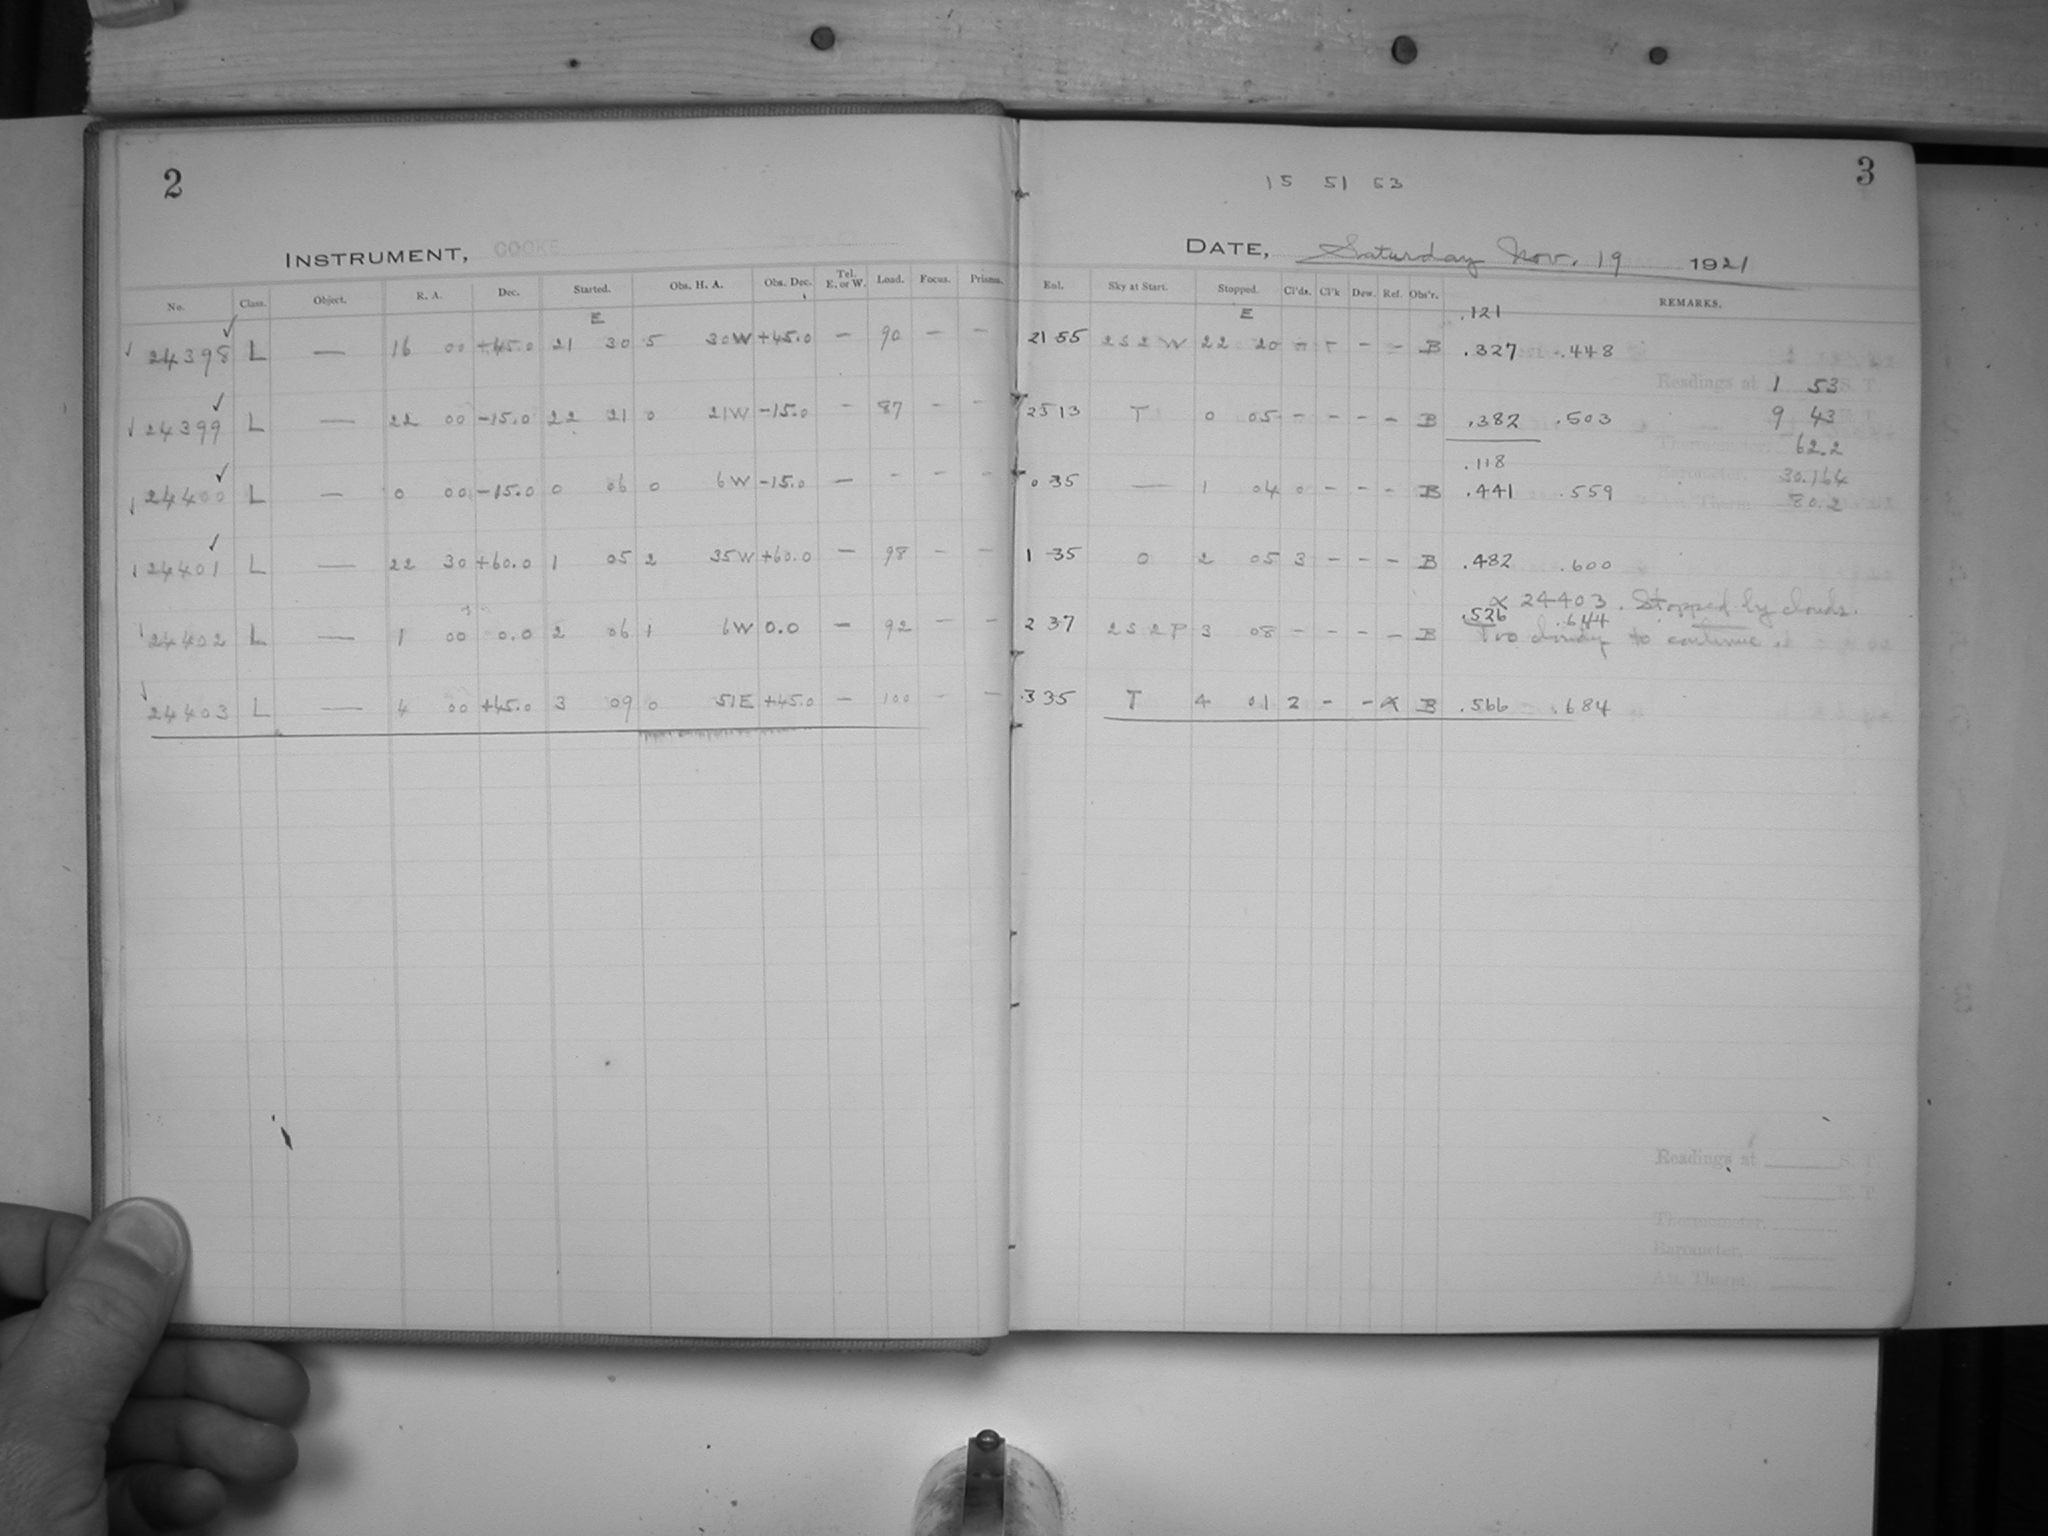 2
INSTRUMENT, COOKE
No. Class. Object. R. A. Dec. Started. Obs. H. A. Obs. Dec. Tel. E. or W. Load. Focus. Prisms.
E
24398 L — 16 00 +45.0 21 30 5 30W +45.0 — 90 — —
24399 L — 22 00 -15.0 22 21 0 21W -15.0 - 87 - -
24400 L — 0 00 -15.0 0 06 0 6W -15.0 — - - -
24401 L — 22 30 +60.0 1 05 2 35W +60.0 — 98 - -
24402 L — 1 00 0.0 2 06 1 6W 0.0 — 92 - -
24403 L — 4 00 +45.0 3 09 0 51E +45.0 — 100 - —
3
15 51 53
DATE, Saturday Nov. 19 1921
Enl. Sky at Start. Stopped. Cl'ds. Cl'k Dew. Ref. Obs'r. REMARKS.
E .121
21 55 2S2W 22 20 - - - - B .327 .448
Readings at 1 53 S. T.
2313 T 0 05 - - - - B .382 .503 9 43
62.2
.118
0 35 — 1 04 0 - - - B .441 .559 30.164
80.2
1 35 0 2 05 3 - - - B .482 .600
x 24403. Stopped by clouds.
2 37 2S2P 3 08 - - - - B .526 .644
Too cloudy to continue.
3 35 T 4 01 2 - - x B .566 .684
Readings at S. T.
Thermometer,
Barometer,
Att. Therm.